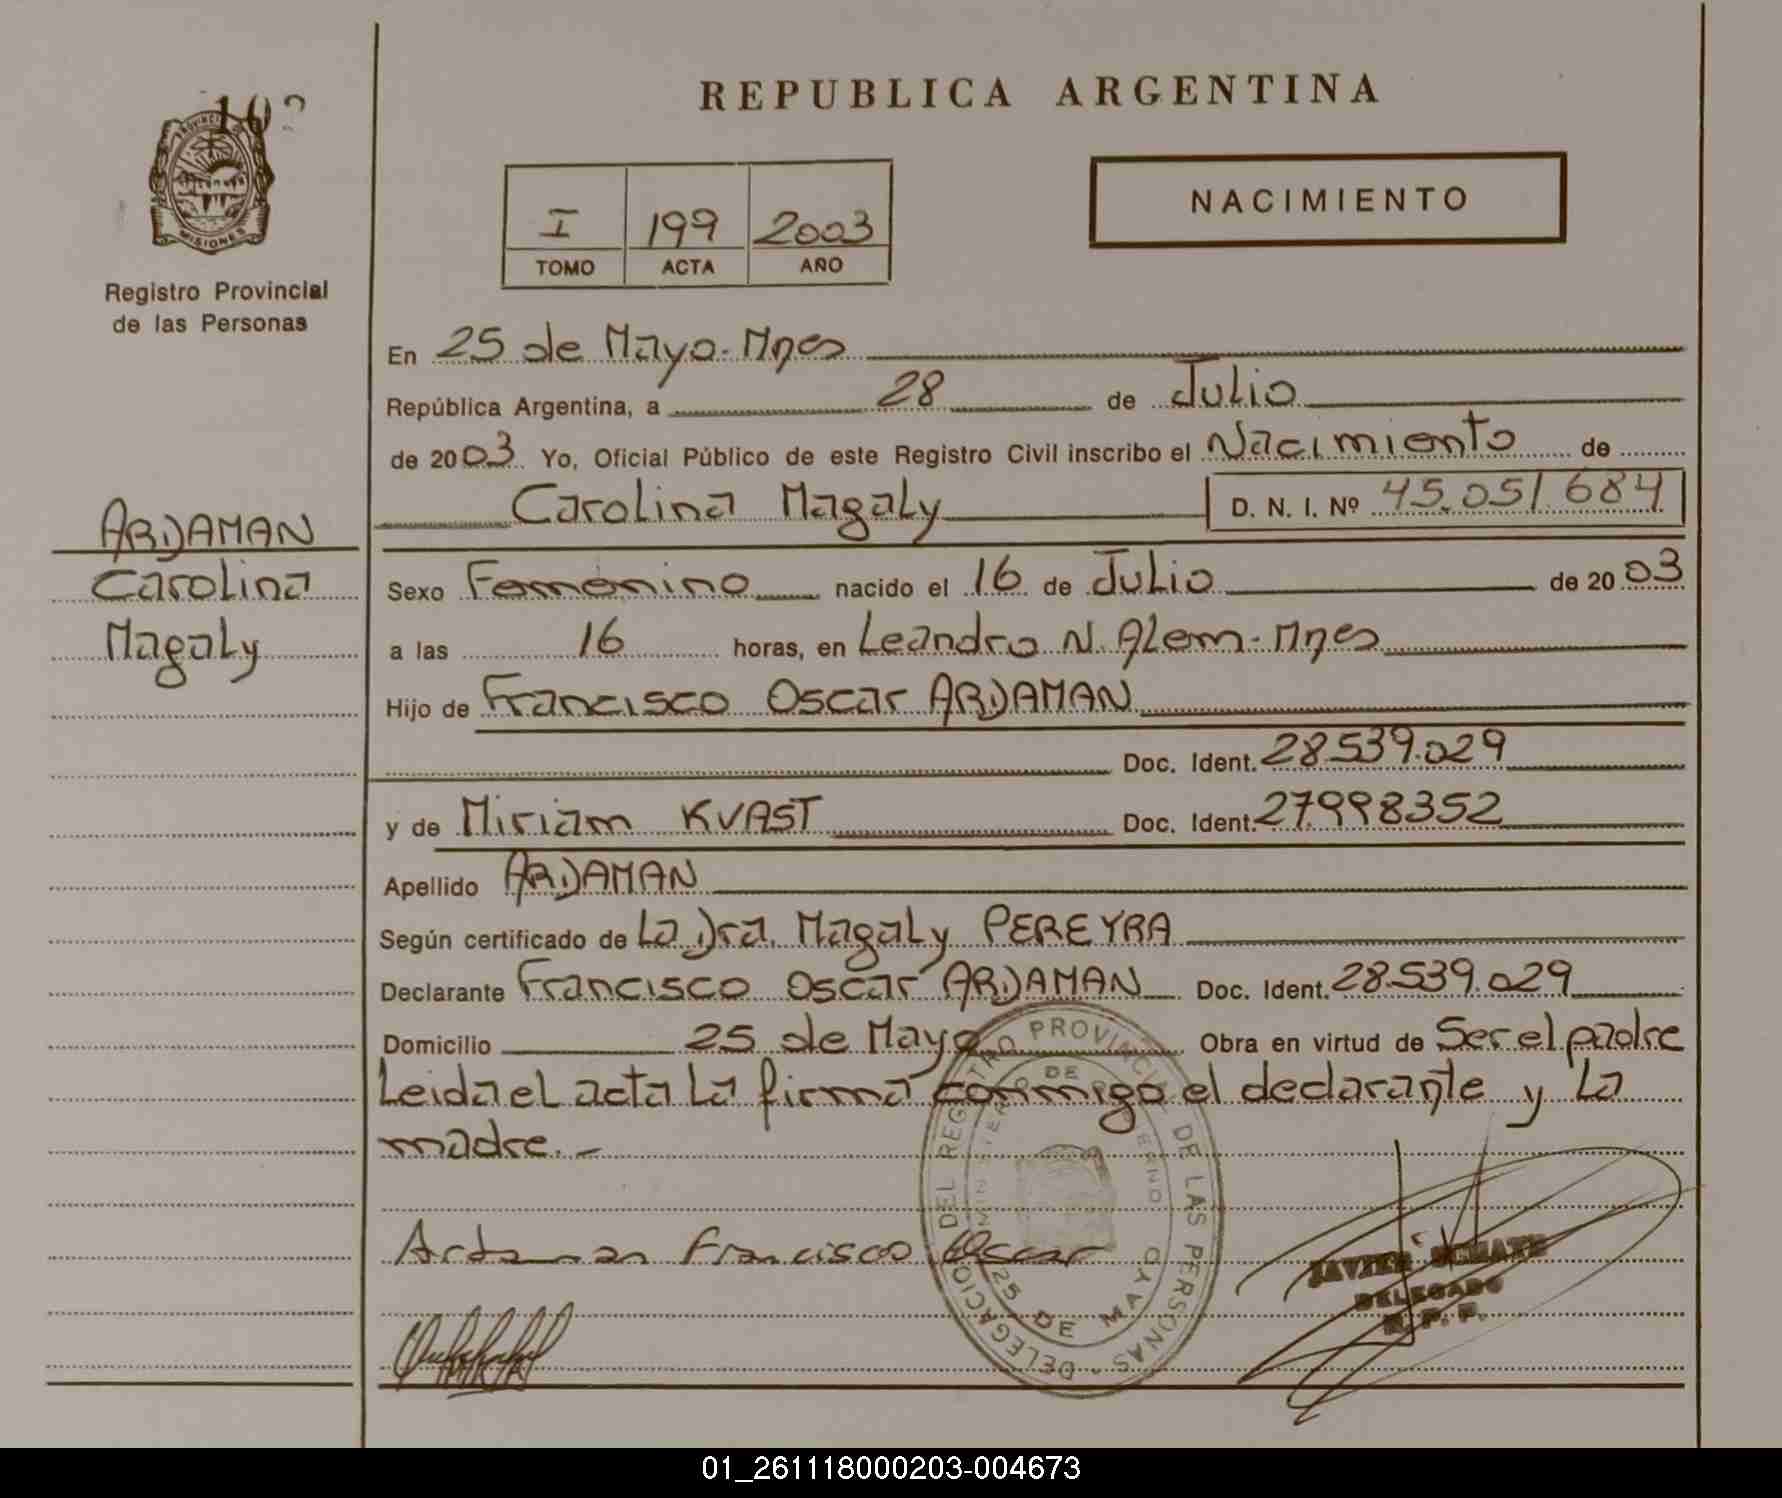 REPUBLICA ARGENTINA
NACIMIENTO
I 199 2003
TOMO ACTA AÑO
PROVINCIA DE
MISIONES
Registro Provincial
de las Personas
ARDAMAN
Carolina
Magaly
En 25 de Mayo-Mnes
República Argentina, a 28 de Julio
de 2003 Yo, Oficial Público de este Registro Civil inscribo el Nacimiento de
Carolina Magaly D. N. I. Nº 45.051.684
Sexo Femenino nacido el 16 de Julio de 2003
a las 16 horas, en Leandro N. Alem-Mnes
Hijo de Francisco Oscar ARDAMAN
Doc. Ident. 28.539.029
y de Miriam KVAST Doc. Ident. 27998352
Apellido ARDAMAN
Según certificado de La Dra. Magaly PEREYRA
Declarante Francisco Oscar ARDAMAN Doc. Ident. 28.539.029
Domicilio 25 de Mayo Obra en virtud de Ser el padre
Leida el acta La firma conmigo el declarante y La
madre.-
Ardaman Francisco Oscar
DELEGACION DEL REGISTRO PROVINCIAL DE LAS PERSONAS
MINISTERIO DE GOBIERNO
25 DE MAYO
JAVIER
DELEGADO
R. P. P.
01_261118000203-004673